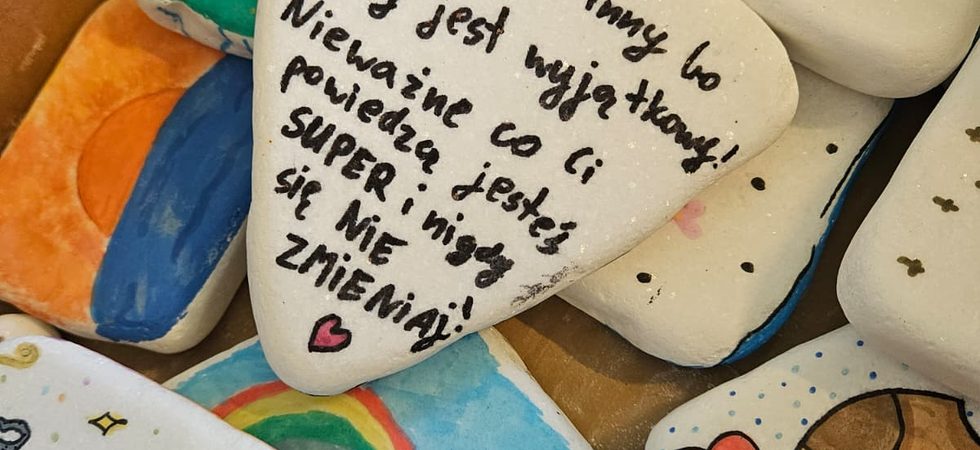 inny bo
jest wyjątkowy!
Nieważne co Ci
powiedzą jesteś
SUPER i nigdy
się NIE
ZMIENIAJ!